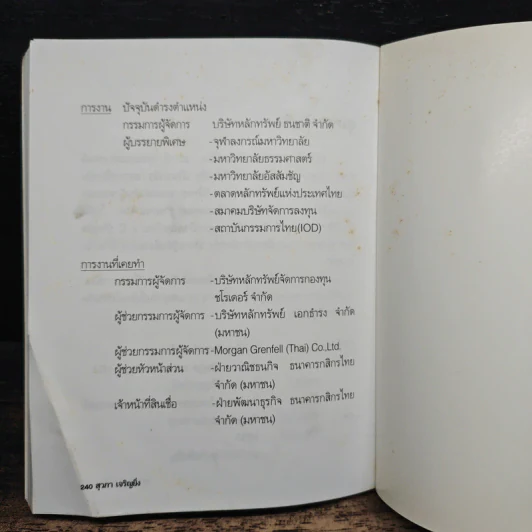 การงาน ปัจจุบันดำรงตำแหน่ง
กรรมการผู้จัดการ บริษัทหลักทรัพย์ ธนชาติ จำกัด
ผู้บรรยายพิเศษ -จุฬาลงกรณ์มหาวิทยาลัย
-มหาวิทยาลัยธรรมศาสตร์
-มหาวิทยาลัยอัสสัมชัญ
-ตลาดหลักทรัพย์แห่งประเทศไทย
-สมาคมบริษัทจัดการลงทุน
-สถาบันกรรมการไทย(IOD)
การงานที่เคยทำ
กรรมการผู้จัดการ -บริษัทหลักทรัพย์จัดการกองทุน
ชโรเดอร์ จำกัด
ผู้ช่วยกรรมการผู้จัดการ -บริษัทหลักทรัพย์ เอกธำรง จำกัด
(มหาชน)
ผู้ช่วยกรรมการผู้จัดการ -Morgan Grenfell (Thai) Co.,Ltd.
ผู้ช่วยหัวหน้าส่วน -ฝ่ายวาณิชธนกิจ ธนาคารกสิกรไทย
จำกัด (มหาชน)
เจ้าหน้าที่สินเชื่อ -ฝ่ายพัฒนาธุรกิจ ธนาคารกสิกรไทย
จำกัด (มหาชน)
240 สุวภา เจริญยิ่ง